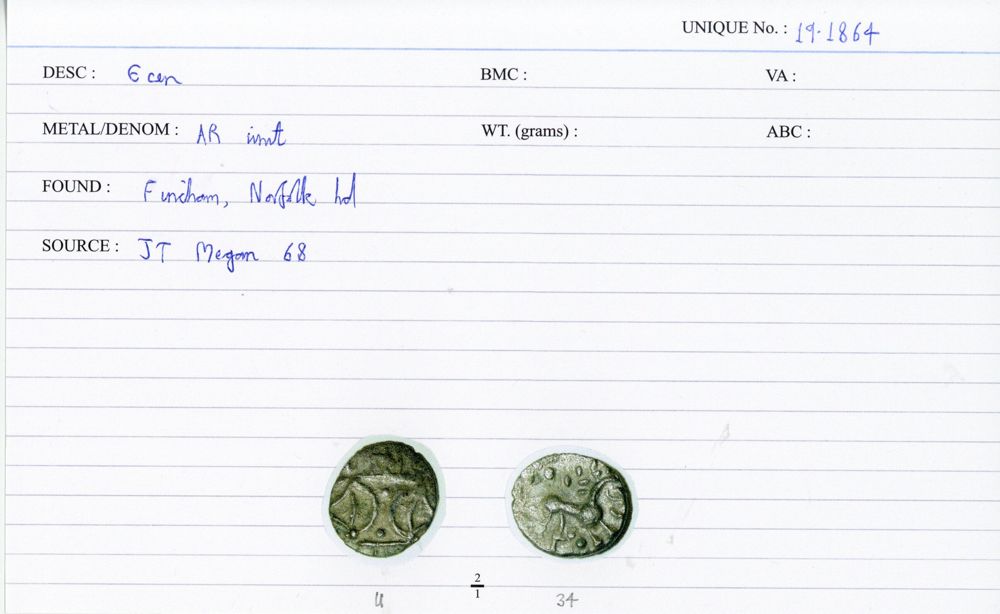 UNIQUE No. : 19.1864
DESC : Ecen BMC : VA :
METAL/DENOM : AR unit WT. (grams) : ABC :
FOUND : Fincham, Norfolk hd
SOURCE : JT Megan 68
2
1
34